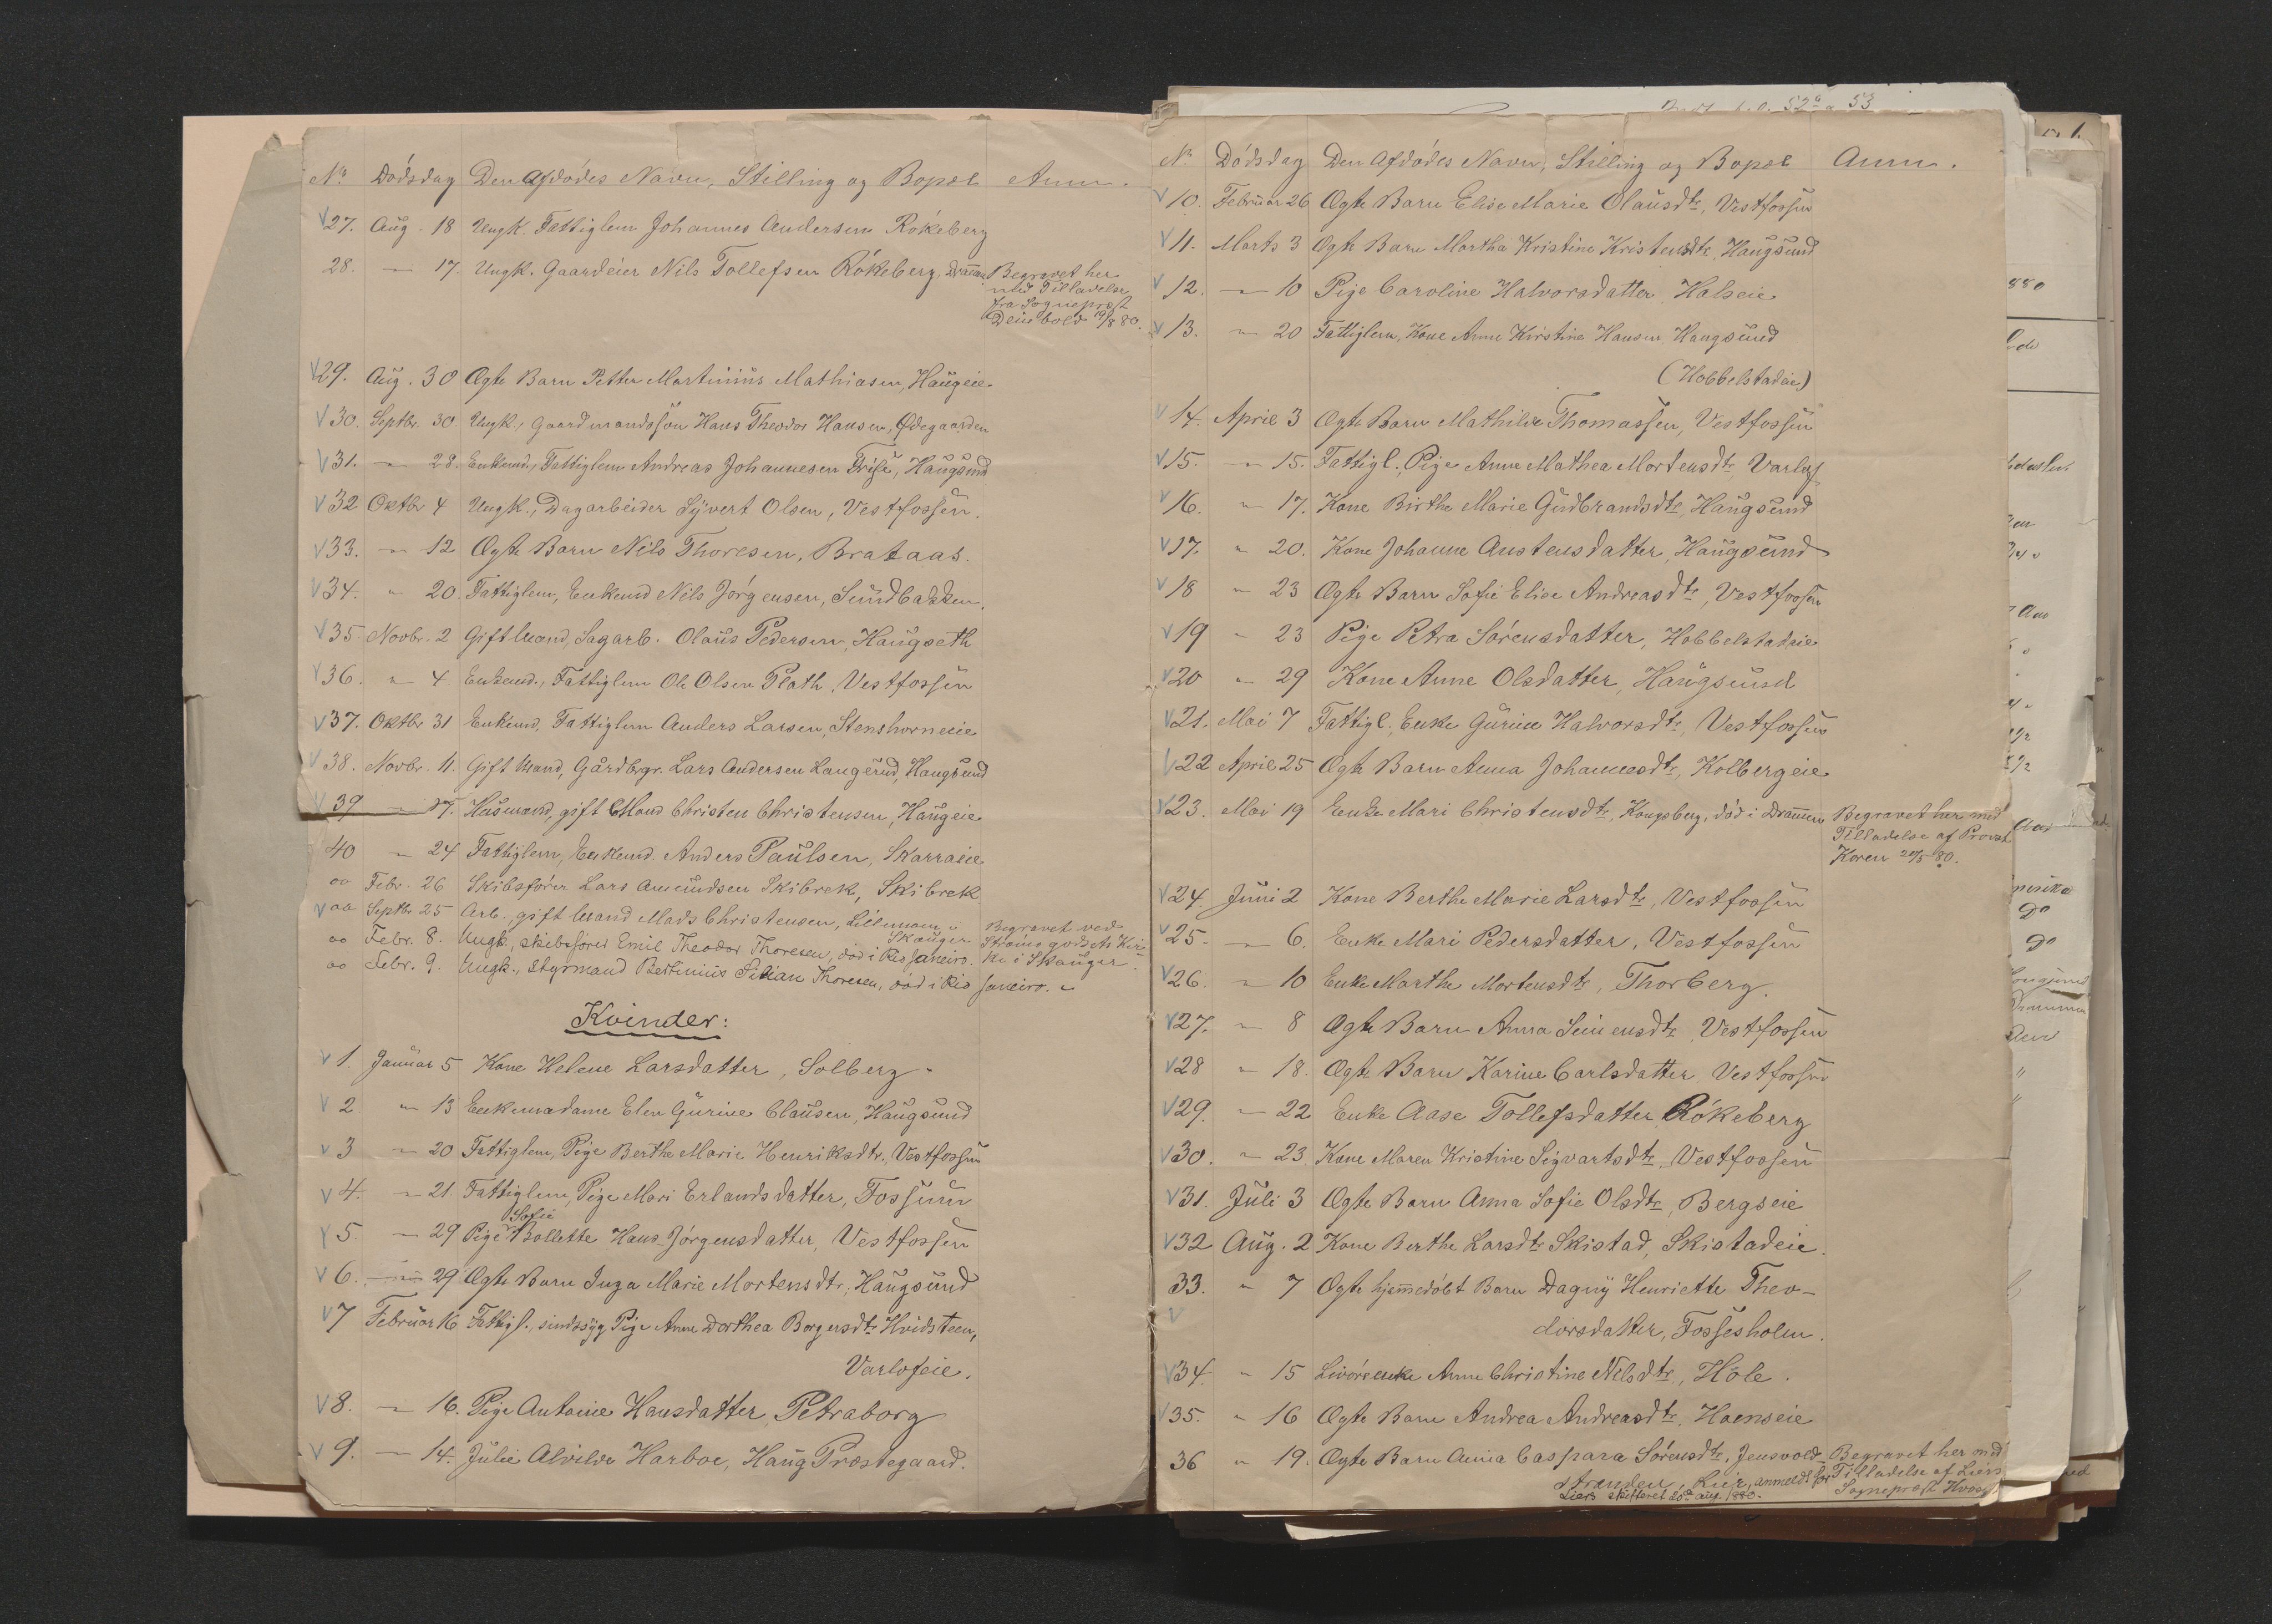 No Dödsdag Den Afdödes Navn, Stilling og Bopæl Anm.
27. Aug. 18 Ungk. Fattiglem Johannes Andersen Rökeberg
28. — 17. Ungk. Gaardeier Nils Tollefsen Rökeberg, Dramen Begravet her
med Tilladelse
fra Sognepræst
19/8 80.
29. Aug. 30 Ægte Barn Petter Martinius Mathiasen, Haugeie
30. Septbr. 30 Ungk., Gaardmandssön Hans Theodor Hansen, Ödegaarden
31. — 28. Enkemd., Fattiglem Andreas Johannesen Friisе, Haugsund
32 Oktbr 4 Ungk., Dagarbeider Syvert Olsen, Vestfossen.
33. — 12 Ægte Barn Nils Thoresen, Brataas.
34. " 20. Fattiglem, Enkemd Nils Jörgensen, Sundbakken.
35 Novbr. 2 Gift Mand, Sagarb. Olaus Pedersen, Haugseth
36. " 4. Enkemd., Fattiglem Ole Olsen Plath, Vestfossen
37. Oktbr 31 Enkemd, Fattiglem Anders Larsen, Stenshorneie
38. Novbr. 11. Gift Mand, Gårdbrgr. Lars Andersen Langerud, Haugsund
39 — 17. Husmand, gift Mand Christen Christensen, Haugeie
40 — 24 Fattiglem, Enkemd. Anders Paulsen, Skarraeie
oo Febr. 26 Skibsförer Lars Amundsen Skibrek, Skibrek
oo Septbr 25 Arb., gift Mand Mads Christensen, Skauger Begravet ved
oo Febr. 8. Ungk., skibsförer Emil Theodor Thoresen, död i Rio Janeiro. Strömsgodsets Kir-
ke i Skauger.
oo Febr. 9. Ungk., Styrmand Bertinius Thoresen, död i Rio Janeiro.
Kvinder:
1. Januar 5 Kone Helene Larsdatter, Solberg
2 " 13 Enkemadame Elen Gurine Clausen, Haugsund
3 — 20 Fattiglem, Pige Berthe Marie Henriksdtr., Vestfossen
4. — 21. Fattiglem, Pige Mari Erlandsdatter, Fossum
Sofie
5. — 29 Pige Bollette Hans-Jörgensdatter, Vestfossen
6. — 29 Ægte Barn Inga Marie Mortensdtr., Haugsund
7 Februar 16 Fattigl. sindssyg Pige Anne Dorthea Borgersdtr Hvidsteen,
Varloseie.
8. — 16. Pige Antonie Hansdatter, Petraborg
9. — 14. Julie Alvilde Harboe, Haug Præstegaard.
No Dödsdag Den Afdödes Navn, Stilling og Bopæl Anm.
10. Februar 26 Ægte Barn Elise Marie Olausdtr, Vestfossen
11. Marts 3 Ægte Barn Martha Kristine Kristensdtr, Haugsund
12. — 10 Pige Caroline Halvorsdatter, Halseie
13. — 20 Fattiglem, Kone Anne Kirstine Hansen, Haugsund
(Hobbelstadeie)
14. April 3 Ægte Barn Mathilde Thomassen, Vestfossen
15. — 15. Fattigl. Pige Anne Mathea Mortensdtr, Varlos
16. " 17. Kone Birthe Marie Gudbrandsdtr, Haugsund
17. " 20. Kone Johanne Austensdatter, Haugsund
18 — 23 Ægte Barn Sofie Elise Andreasdtr, Vestfossen
19 — 23 Pige Petra Sörensdatter, Hobbelstadeie
20 " 29 Kone Anne Olsdatter, Haugsund
21. Mai 7 Fattigl., Enke Gurine Halvorsdtr, Vestfossen
22 April 25 Ægte Barn Anna Johannesdtr, Kolbergeie
23. Mai 19 Enke Mari Christensdtr, Kongsberg, död i Dramen Begravet her med
Tilladelse af Provst
Koren 80.
24. Juni 2 Kone Berthe Marie Larsdtr, Vestfossen
25. — 6. Enke Mari Pedersdatter, Vestfossen
26. " 10 Enke Marthe Mortensdtr, Thorberg.
27. " 8 Ægte Barn Anna Simensdtr, Vestfossen
28 " 18. Ægte Barn Karine Carlsdatter Vestfossen
29. — 22 Enke Aase Tollefsdatter Rökeberg
30. — 23. Kone Maren Kristine Sigvartsdtr, Vestfossen
31. Juli 3 Ægte Barn Anna Sofie Olsdtr, Bergseie
32 Aug. 2 Kone Berthe Larsdtr Skistad, Skistadeie.
33. " 7 Ægte hjemmedöbt Barn Dagny Henriette Theo-
dorsdatter, Fossesholm.
34. " 15 Livöreenke Anne Christine Nilsdtr, Hole.
35. " 16 Ægte Barn Andrea Andreasdtr, Hoenseie
36 " 19. Ægte Barn Anna Caspara Sörensdtr, Jensvold- Begravet her med
stranden, Lier, anmeldt for Tilladelse af Liers
Liers skifteret 20de aug. 1880. Sognepræst